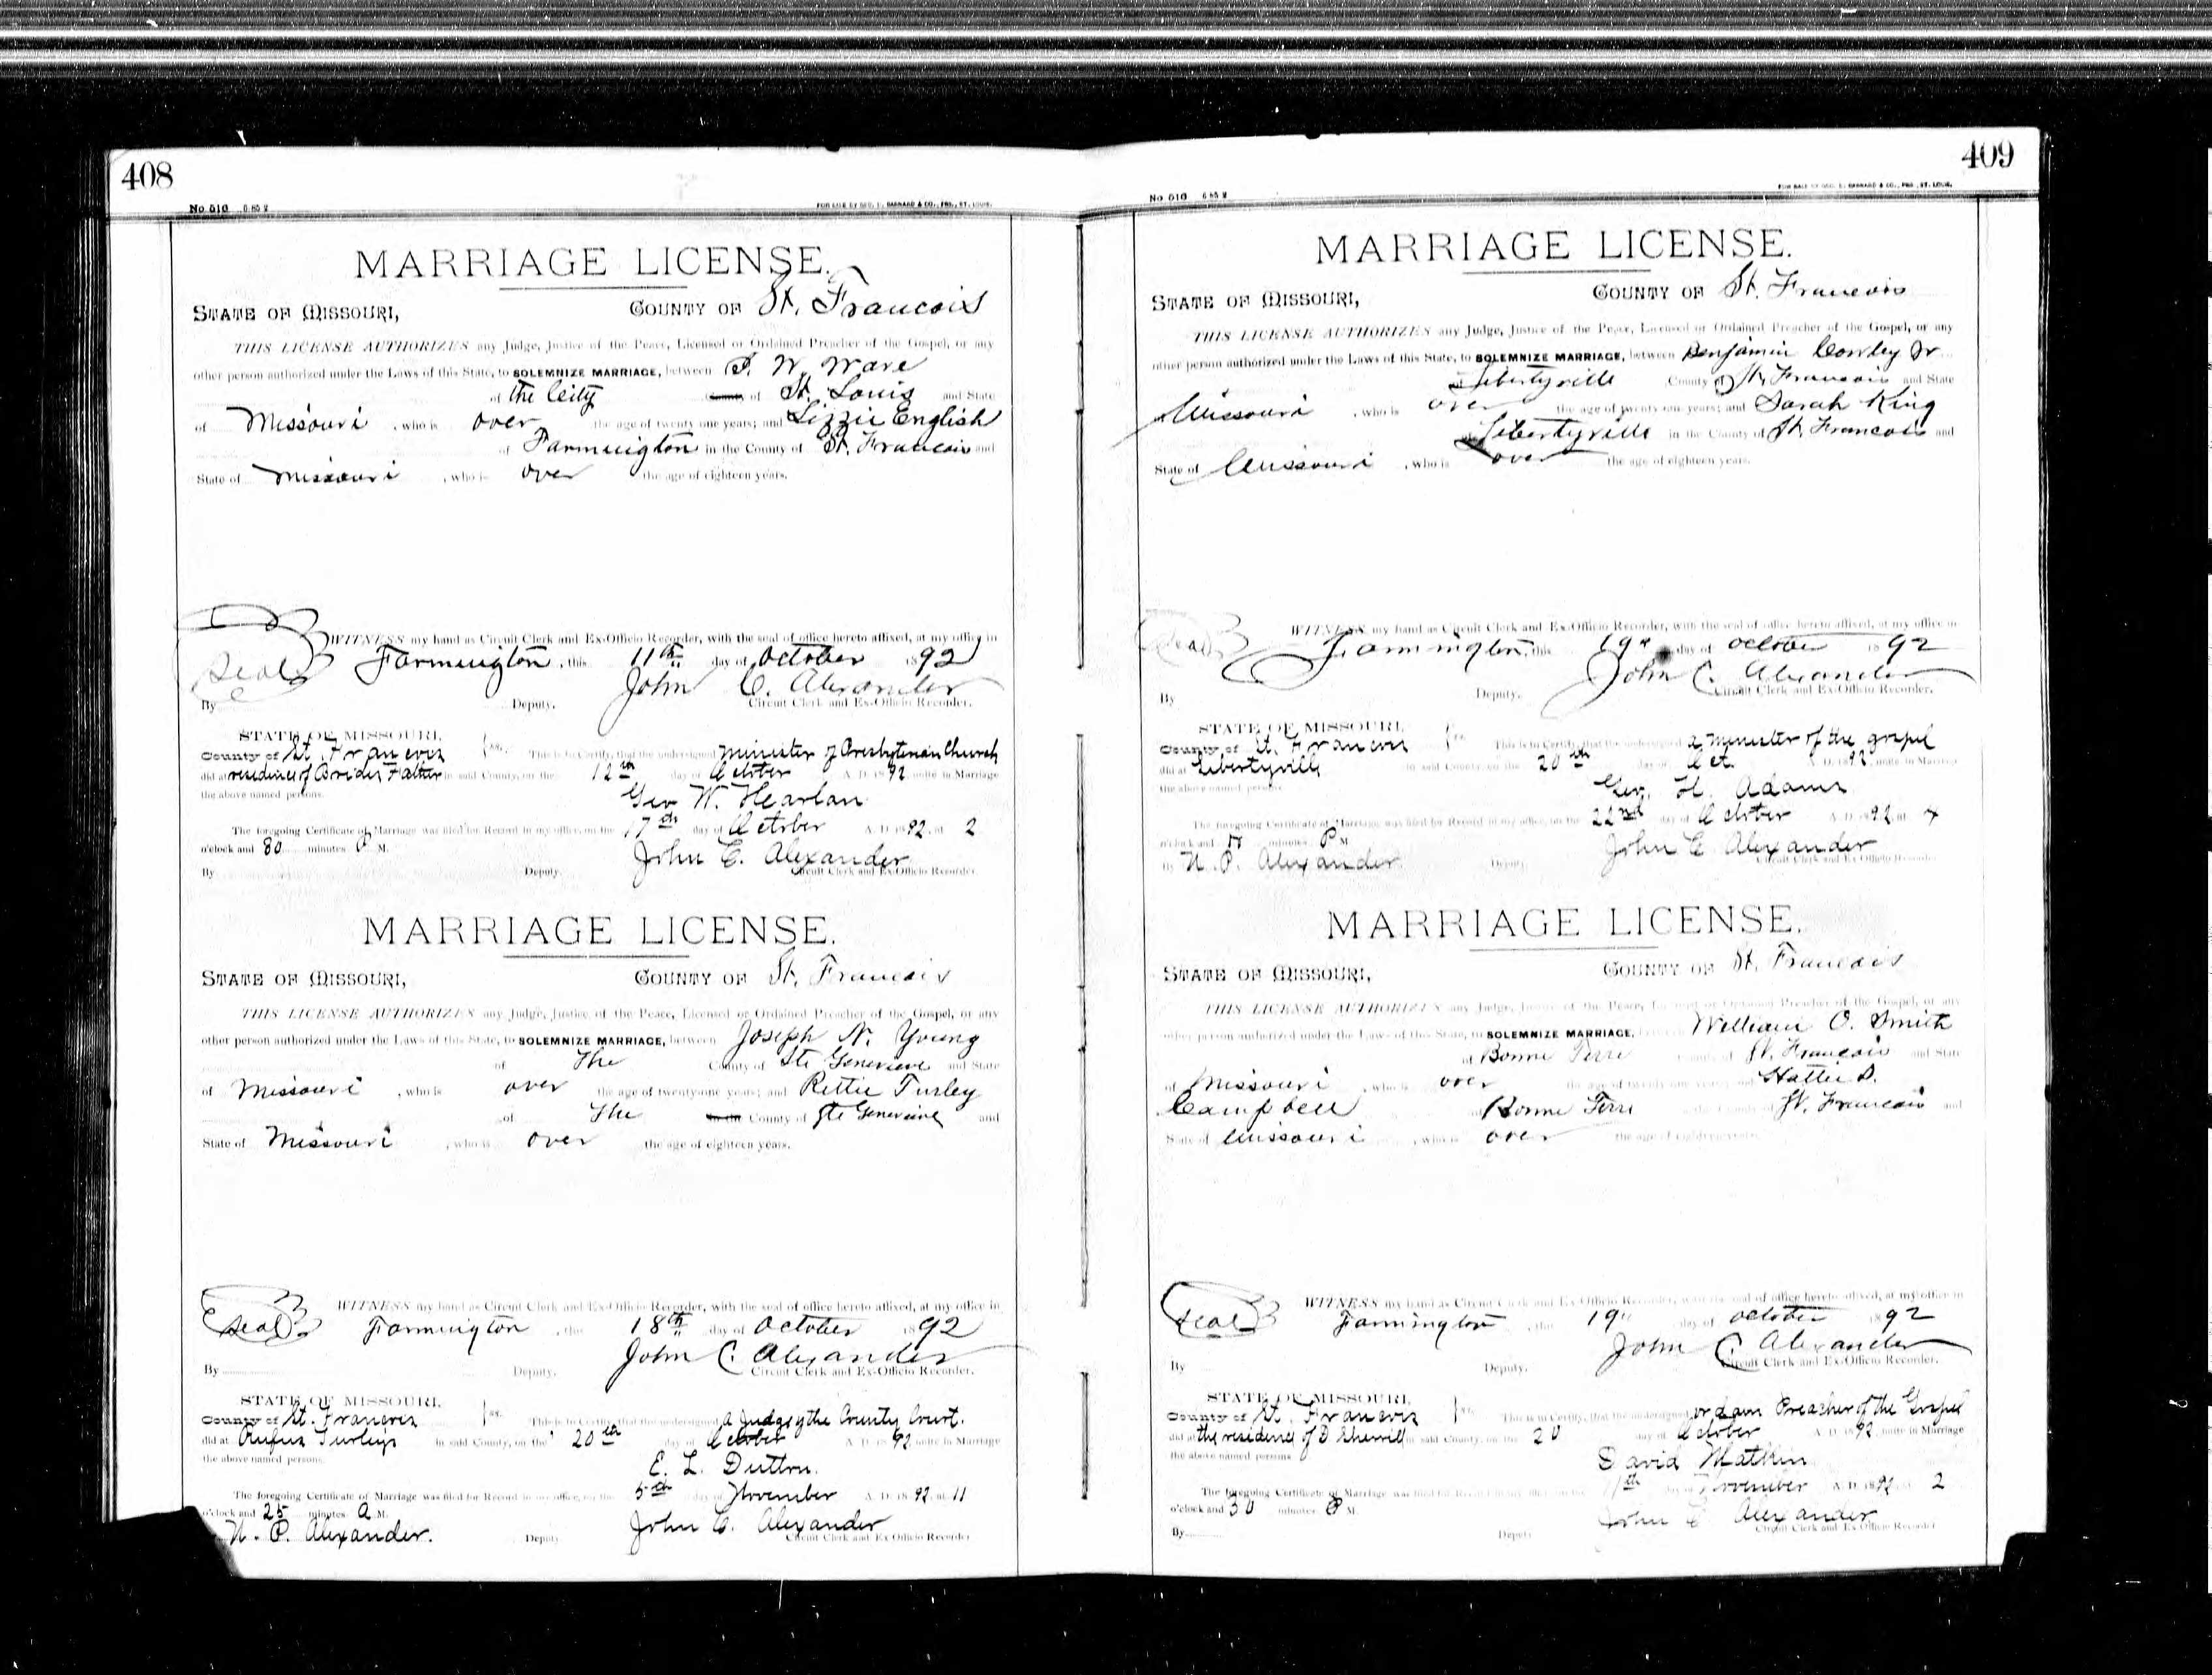 408
No 516 6 85 2
FOR SALE BY GEO. D. BARNARD & CO., PRS., ST. LOUIS.
MARRIAGE LICENSE.
STATE OF MISSOURI, COUNTY OF St. Francois
THIS LICENSE AUTHORIZES any Judge, Justice of the Peace, Licensed or Ordained Preacher of the Gospel, or any
other person authorized under the Laws of this State, to SOLEMNIZE MARRIAGE, between W. Ware
of the City of St. Louis and State
of Missouri, who is over the age of twenty one years; and Lizzie English
of Farmington in the County of St. Francois and
State of Missouri, who is over the age of eighteen years.
WITNESS my hand as Circuit Clerk and Ex-Officio Recorder, with the seal of office hereto affixed, at my office in
Seal Farmington, this 11th day of October 1892
John C. Alexander
By Deputy. Circuit Clerk and Ex-Officio Recorder.
STATE OF MISSOURI,
County of St. Francois ss. This is to Certify, that the undersigned minister of Presbyterian Church
did at residence of Brides Father in said County, on the 12th day of October A. D. 1892 unite in Marriage
the above named persons.
Geo W. Hearlan
The foregoing Certificate of Marriage was filed for Record in my office, on the 17th day of October A. D. 1892, at 2
o'clock and 30 minutes P M.
John C. Alexander
By Deputy. Circuit Clerk and Ex-Officio Recorder.
MARRIAGE LICENSE.
STATE OF MISSOURI, COUNTY OF St. Francois
THIS LICENSE AUTHORIZES any Judge, Justice of the Peace, Licensed or Ordained Preacher of the Gospel, or any
other person authorized under the Laws of this State, to SOLEMNIZE MARRIAGE, between Joseph N. Young
of The County of Ste Genevieve and State
of Missouri, who is over the age of twenty one years; and Rettie Turley
of The in the County of Ste Genevieve and
State of Missouri, who is over the age of eighteen years.
WITNESS my hand as Circuit Clerk and Ex-Officio Recorder, with the seal of office hereto affixed, at my office in
Seal Farmington, this 18th day of October 1892
John C. Alexander
By Deputy. Circuit Clerk and Ex-Officio Recorder.
STATE OF MISSOURI,
County of St. Francois ss. This is to Certify, that the undersigned a Judge of the County Court.
did at Rufus Turleys in said County, on the 20th day of October A. D. 1892 unite in Marriage
the above named persons.
E. L. Dutton.
The foregoing Certificate of Marriage was filed for Record in my office, on the 5th day of November A. D. 1892, at 11
o'clock and 25 minutes A M.
John C. Alexander
N. P. Alexander. Deputy Circuit Clerk and Ex-Officio Recorder
409
No 516 6 85 2
FOR SALE BY GEO. D. BARNARD & CO., PRS., ST. LOUIS.
MARRIAGE LICENSE.
STATE OF MISSOURI, COUNTY OF St. Francois
THIS LICENSE AUTHORIZES any Judge, Justice of the Peace, Licensed or Ordained Preacher of the Gospel, or any
other person authorized under the Laws of this State, to SOLEMNIZE MARRIAGE, between Benjamin Cowley Jr
Libertyville County of St. Francois and State
Missouri, who is over the age of twenty one years; and Sarah King
of Libertyville in the County of St. Francois and
State of Missouri, who is over the age of eighteen years.
WITNESS my hand as Circuit Clerk and Ex-Officio Recorder, with the seal of office hereto affixed, at my office in
Seal Farmington, this 19" day of October 1892
John C. Alexander
By Deputy. Circuit Clerk and Ex-Officio Recorder.
STATE OF MISSOURI,
County of St. Francois ss. This is to Certify, that the undersigned a minister of the gospel
did at Libertyville in said County, on the 20th day of Oct. A. D. 1892 unite in Marriage
the above named persons
Geo. H. Adams
The foregoing Certificate of Marriage was filed for Record in my office, on the 22nd day of October A. D. 1892, at 4
o'clock and minutes P M
John C Alexander
By N. P. Alexander. Deputy Circuit Clerk and Ex-Officio Recorder
MARRIAGE LICENSE.
STATE OF MISSOURI, COUNTY OF St. Francois
THIS LICENSE AUTHORIZES any Judge, Justice of the Peace, Licensed or Ordained Preacher of the Gospel, or any
other person authorized under the Laws of this State, to SOLEMNIZE MARRIAGE, between William O. Smith
of Bonne Terre County of St. Francois and State
of Missouri, who is over the age of twenty one years; and Hattie D.
Campbell of Bonne Terre in the County of St. Francois and
State of Missouri, who is over the age of eighteen years.
WITNESS my hand as Circuit Clerk and Ex-Officio Recorder, with the seal of office hereto affixed, at my office in
Seal Farmington, this 19" day of October 1892
John C. Alexander
By Deputy. Circuit Clerk and Ex-Officio Recorder.
STATE OF MISSOURI,
County of St. Francois ss. This is to Certify, that the undersigned ordain Preacher of the Gospel
did at the residence of D Sherrill in said County, on the 20 day of October A. D. 1892 unite in Marriage
the above named persons
David Mathin
The foregoing Certificate of Marriage was filed for Record in my office, on the 11th day of November A. D. 1892 2
o'clock and 30 minutes P M.
John C Alexander
By Deputy Circuit Clerk and Ex Officio Recorder